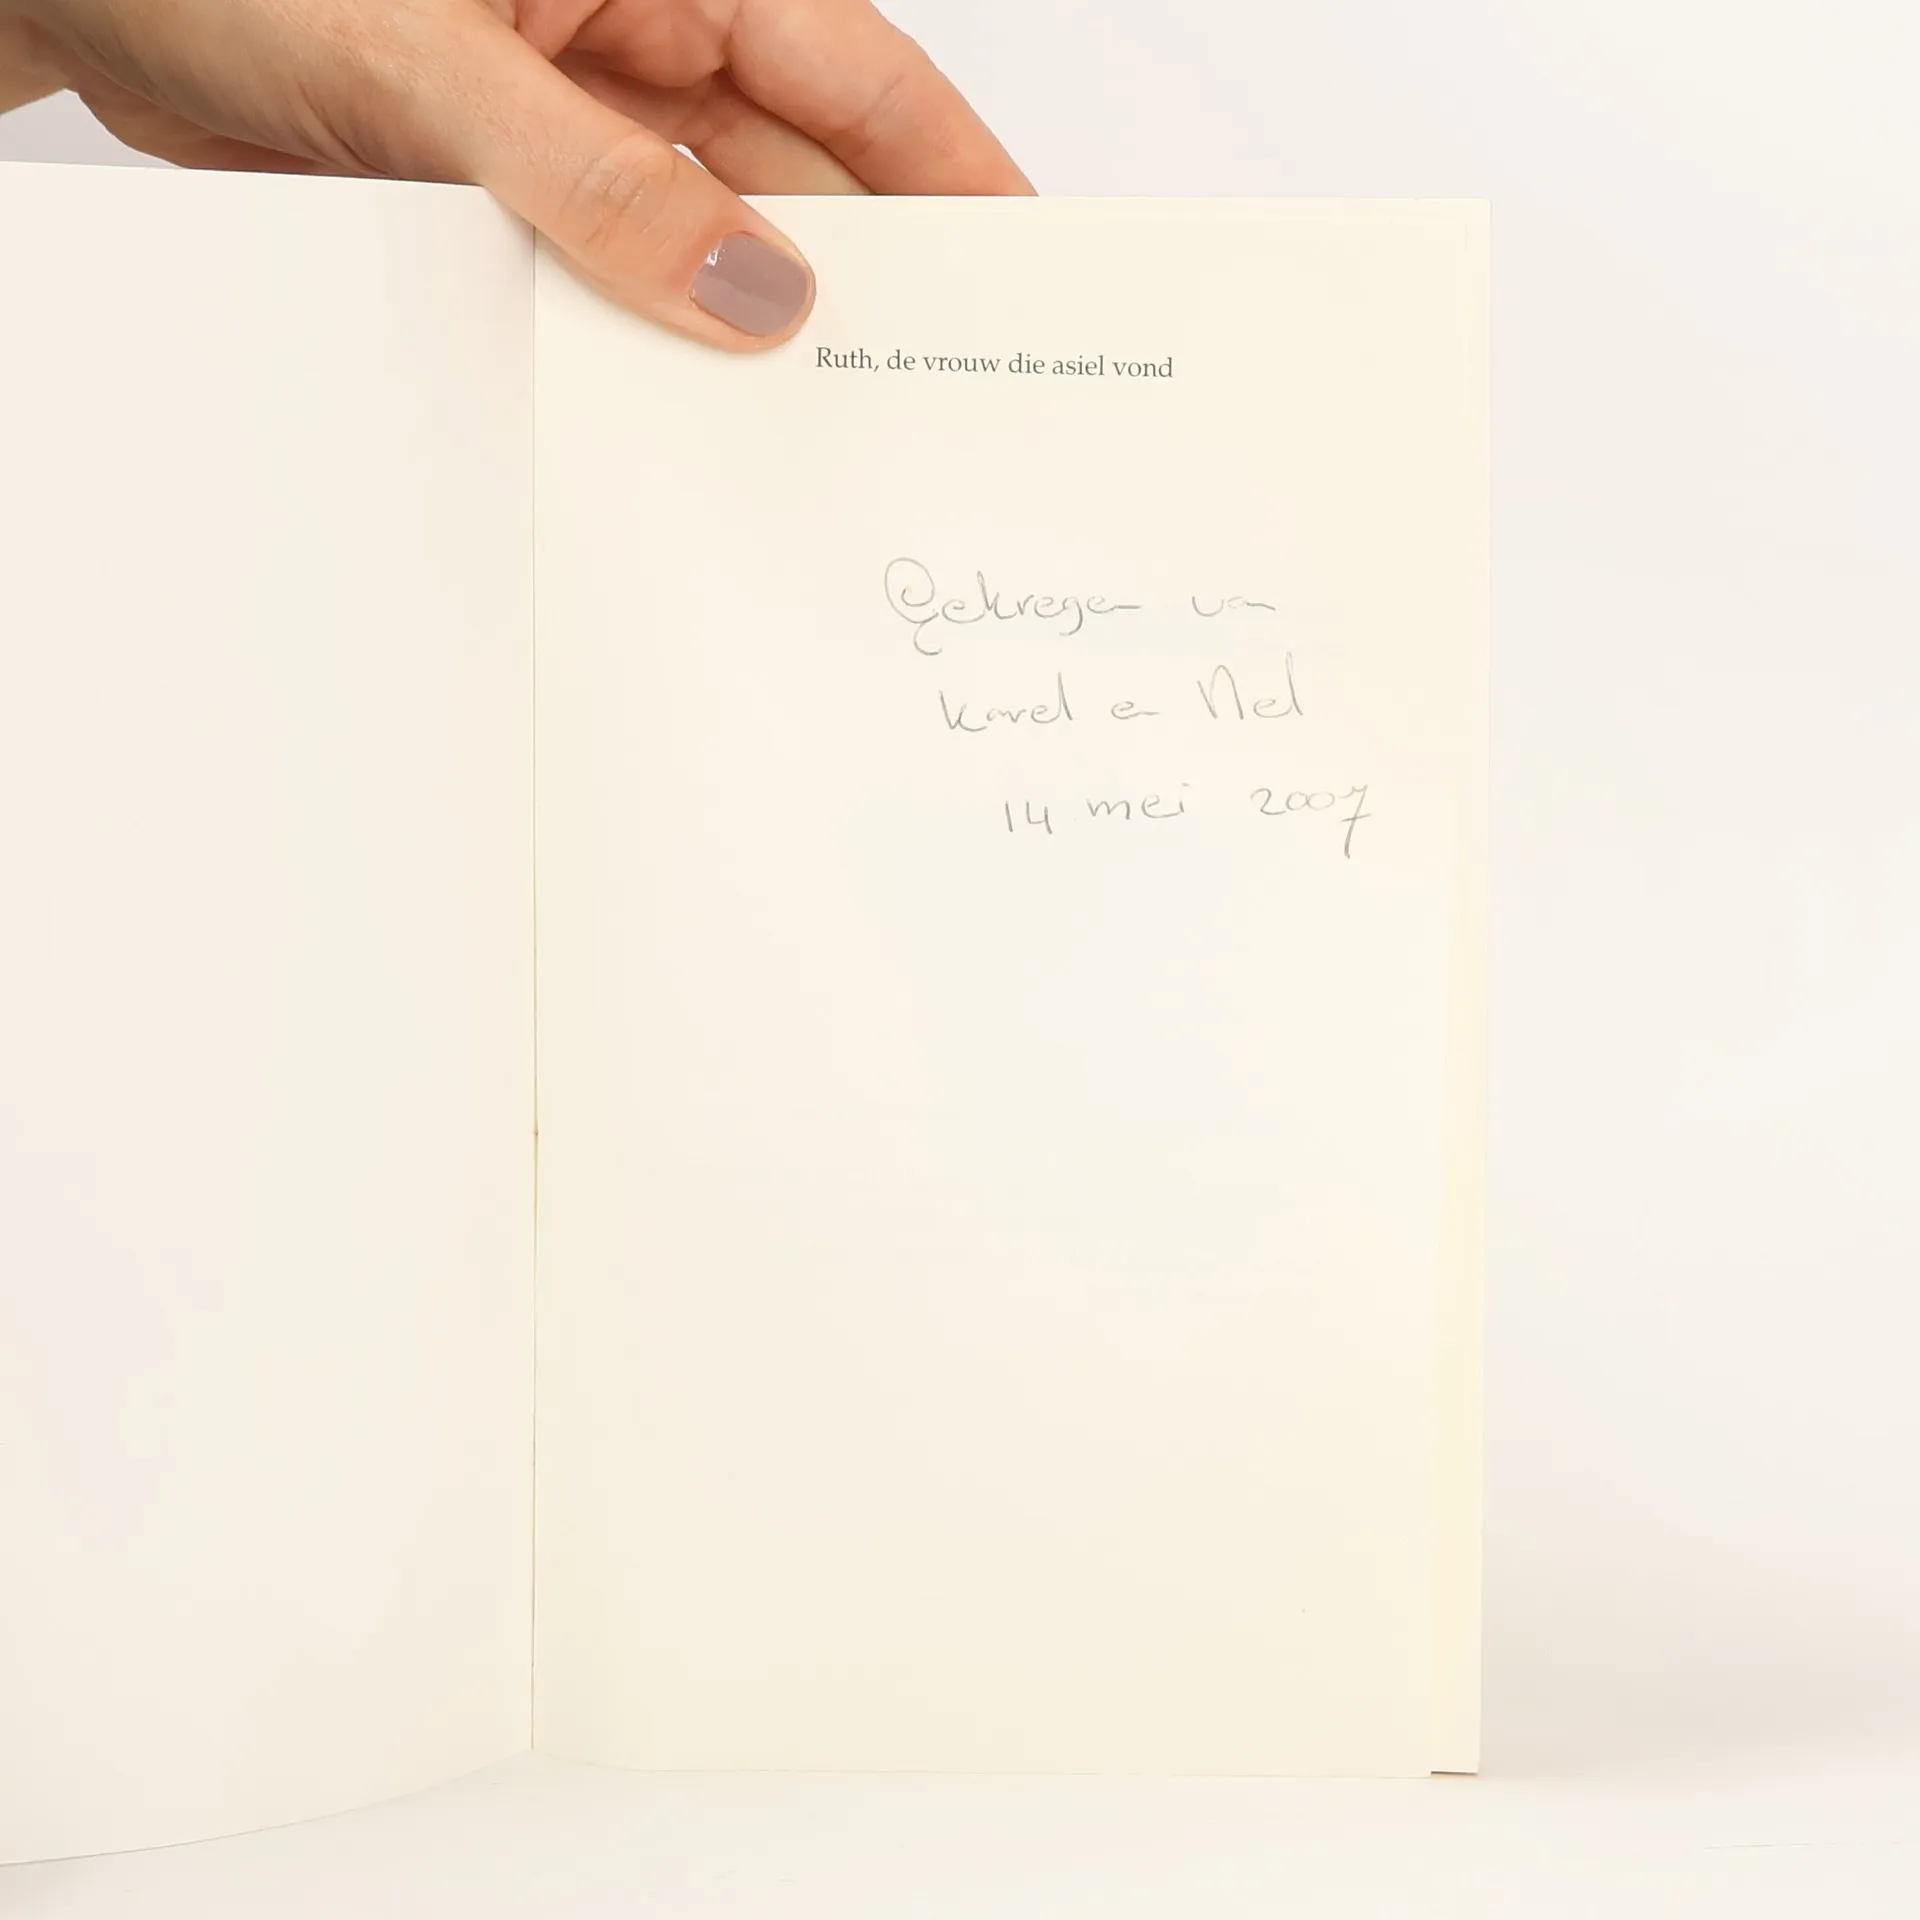 Ruth, de vrouw die asiel vond
Gekregen van
Karel en Nel
14 mei 2007